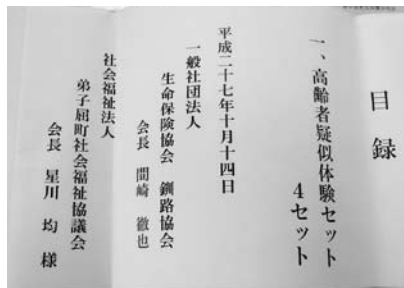 目録
一、高齢者疑似体験セット
4セット
平成二十七年十月十四日
一般社団法人
生命保険協会 釧路協会
会長 間崎 徹也
社会福祉法人
弟子屈町社会福祉協議会
会長 星川 均 様